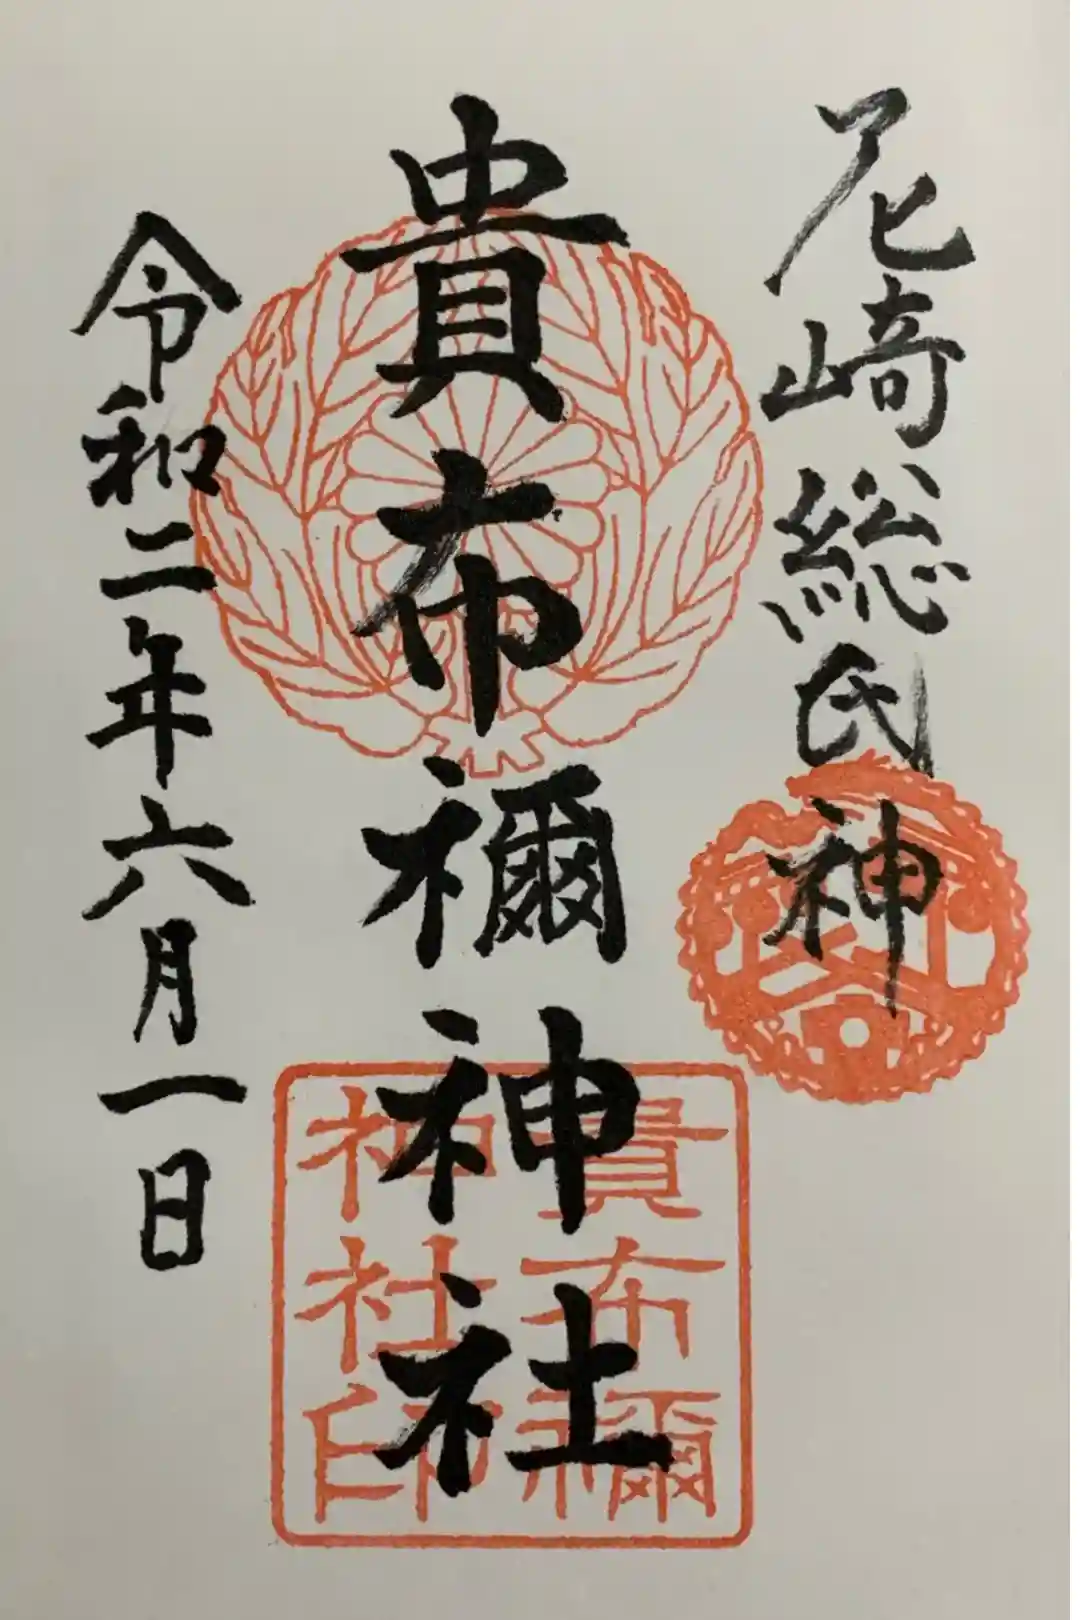 尼崎総氏神
貴布禰神社
令和二年六月一日
貴布禰
神社印